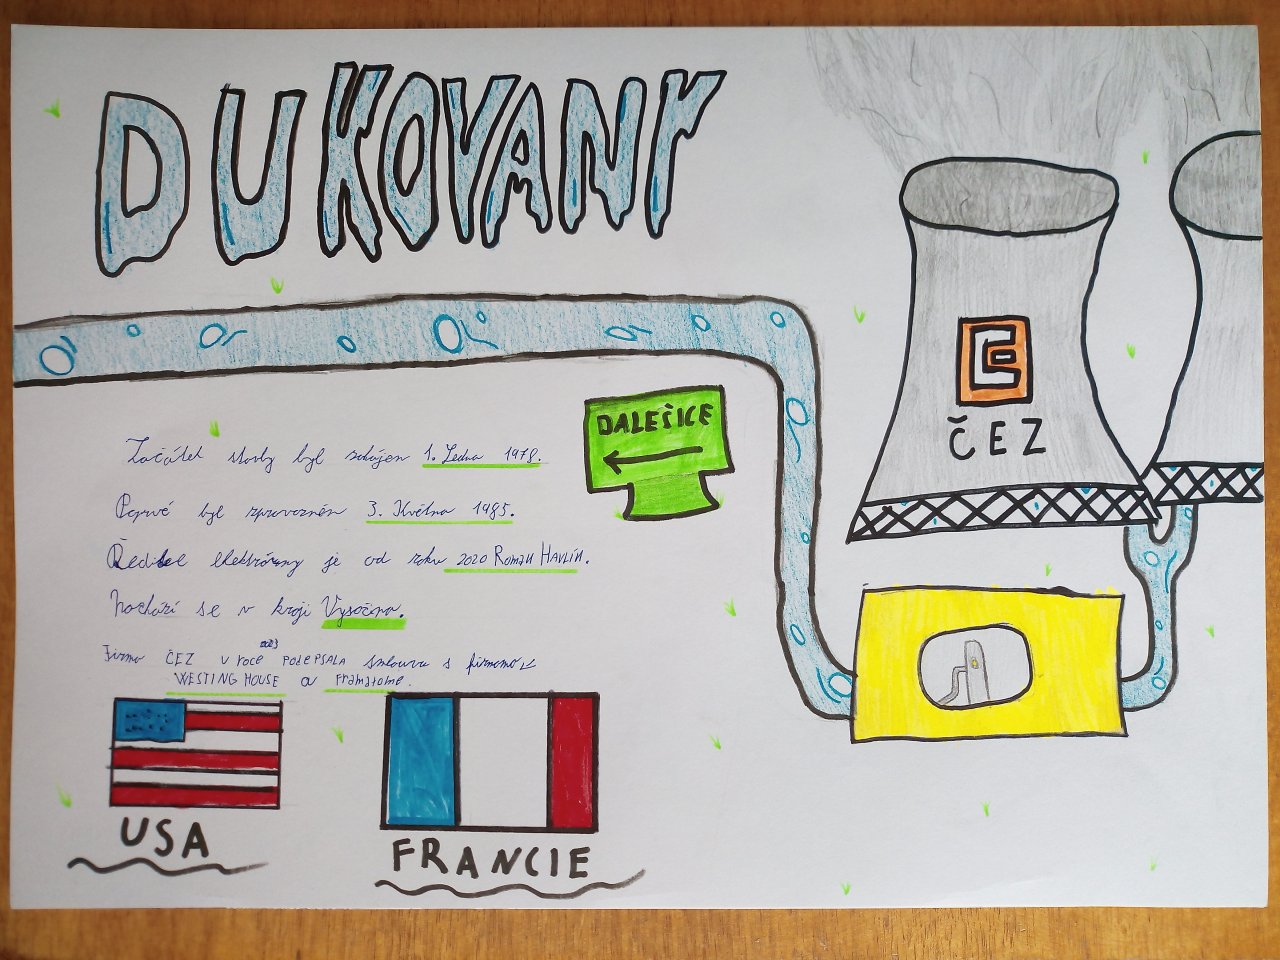 DUKOVANY
ČEZ
DALEŠICE
Začátek stavby byl zahájen 1. Ledna 1978.
Poprvé byl zprovozněn 3. Května 1985.
Ředitel elektrárny je od roku 2020 ROMAN HAVLÍN.
Nachází se v kraji Vysočina.
Firma ČEZ v roce 2023 PODEPSALA smlouvu s firmamo
WESTING HOUSE a Framatome.
USA
FRANCIE